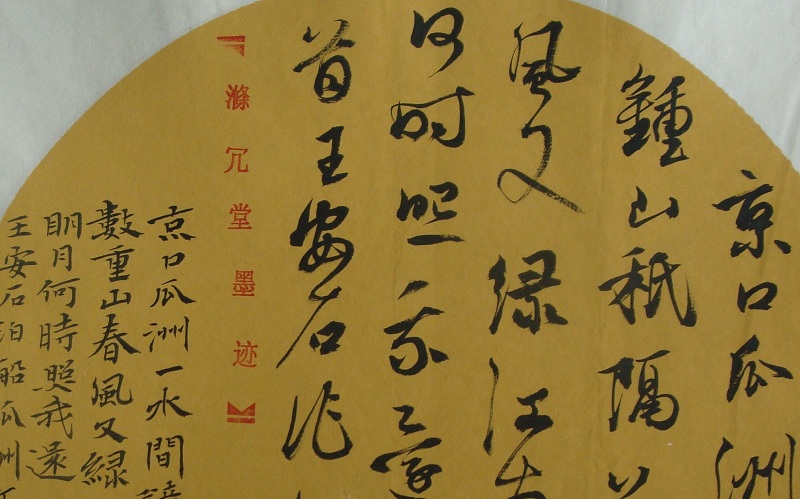 京口瓜洲
鍾山秖隔
風又緑江南
何时照我還
首王安石作
滌冗堂墨迹
京口瓜洲一水間
數重山春風又緑
眀月何時照我還
王安石泊船瓜洲